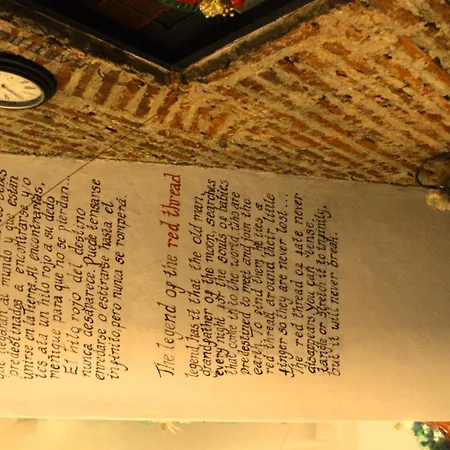 al mundo y que están
predestinados a encontrarse y
unirse en la tierra. Al encontrarlas,
les ata un hilo rojo a su dedo
meñique para que no se pierdan.
El hilo rojo del destino
nunca desaparece. Puede tensarse
enredarse o estirarse hasta el
infinito, pero nunca se romperá.
The legend of the red thread
legend has it that the old man,
grandfather of the moon, searches
every night for the souls of babies
that come into the world who are
predestined to meet and join the
earth. To find them he ties a
red thread around their little
finger so they are never lost...
The red thread of fate never
disappears. You tense,
tangle or stretch it to infinity,
but it will never break.